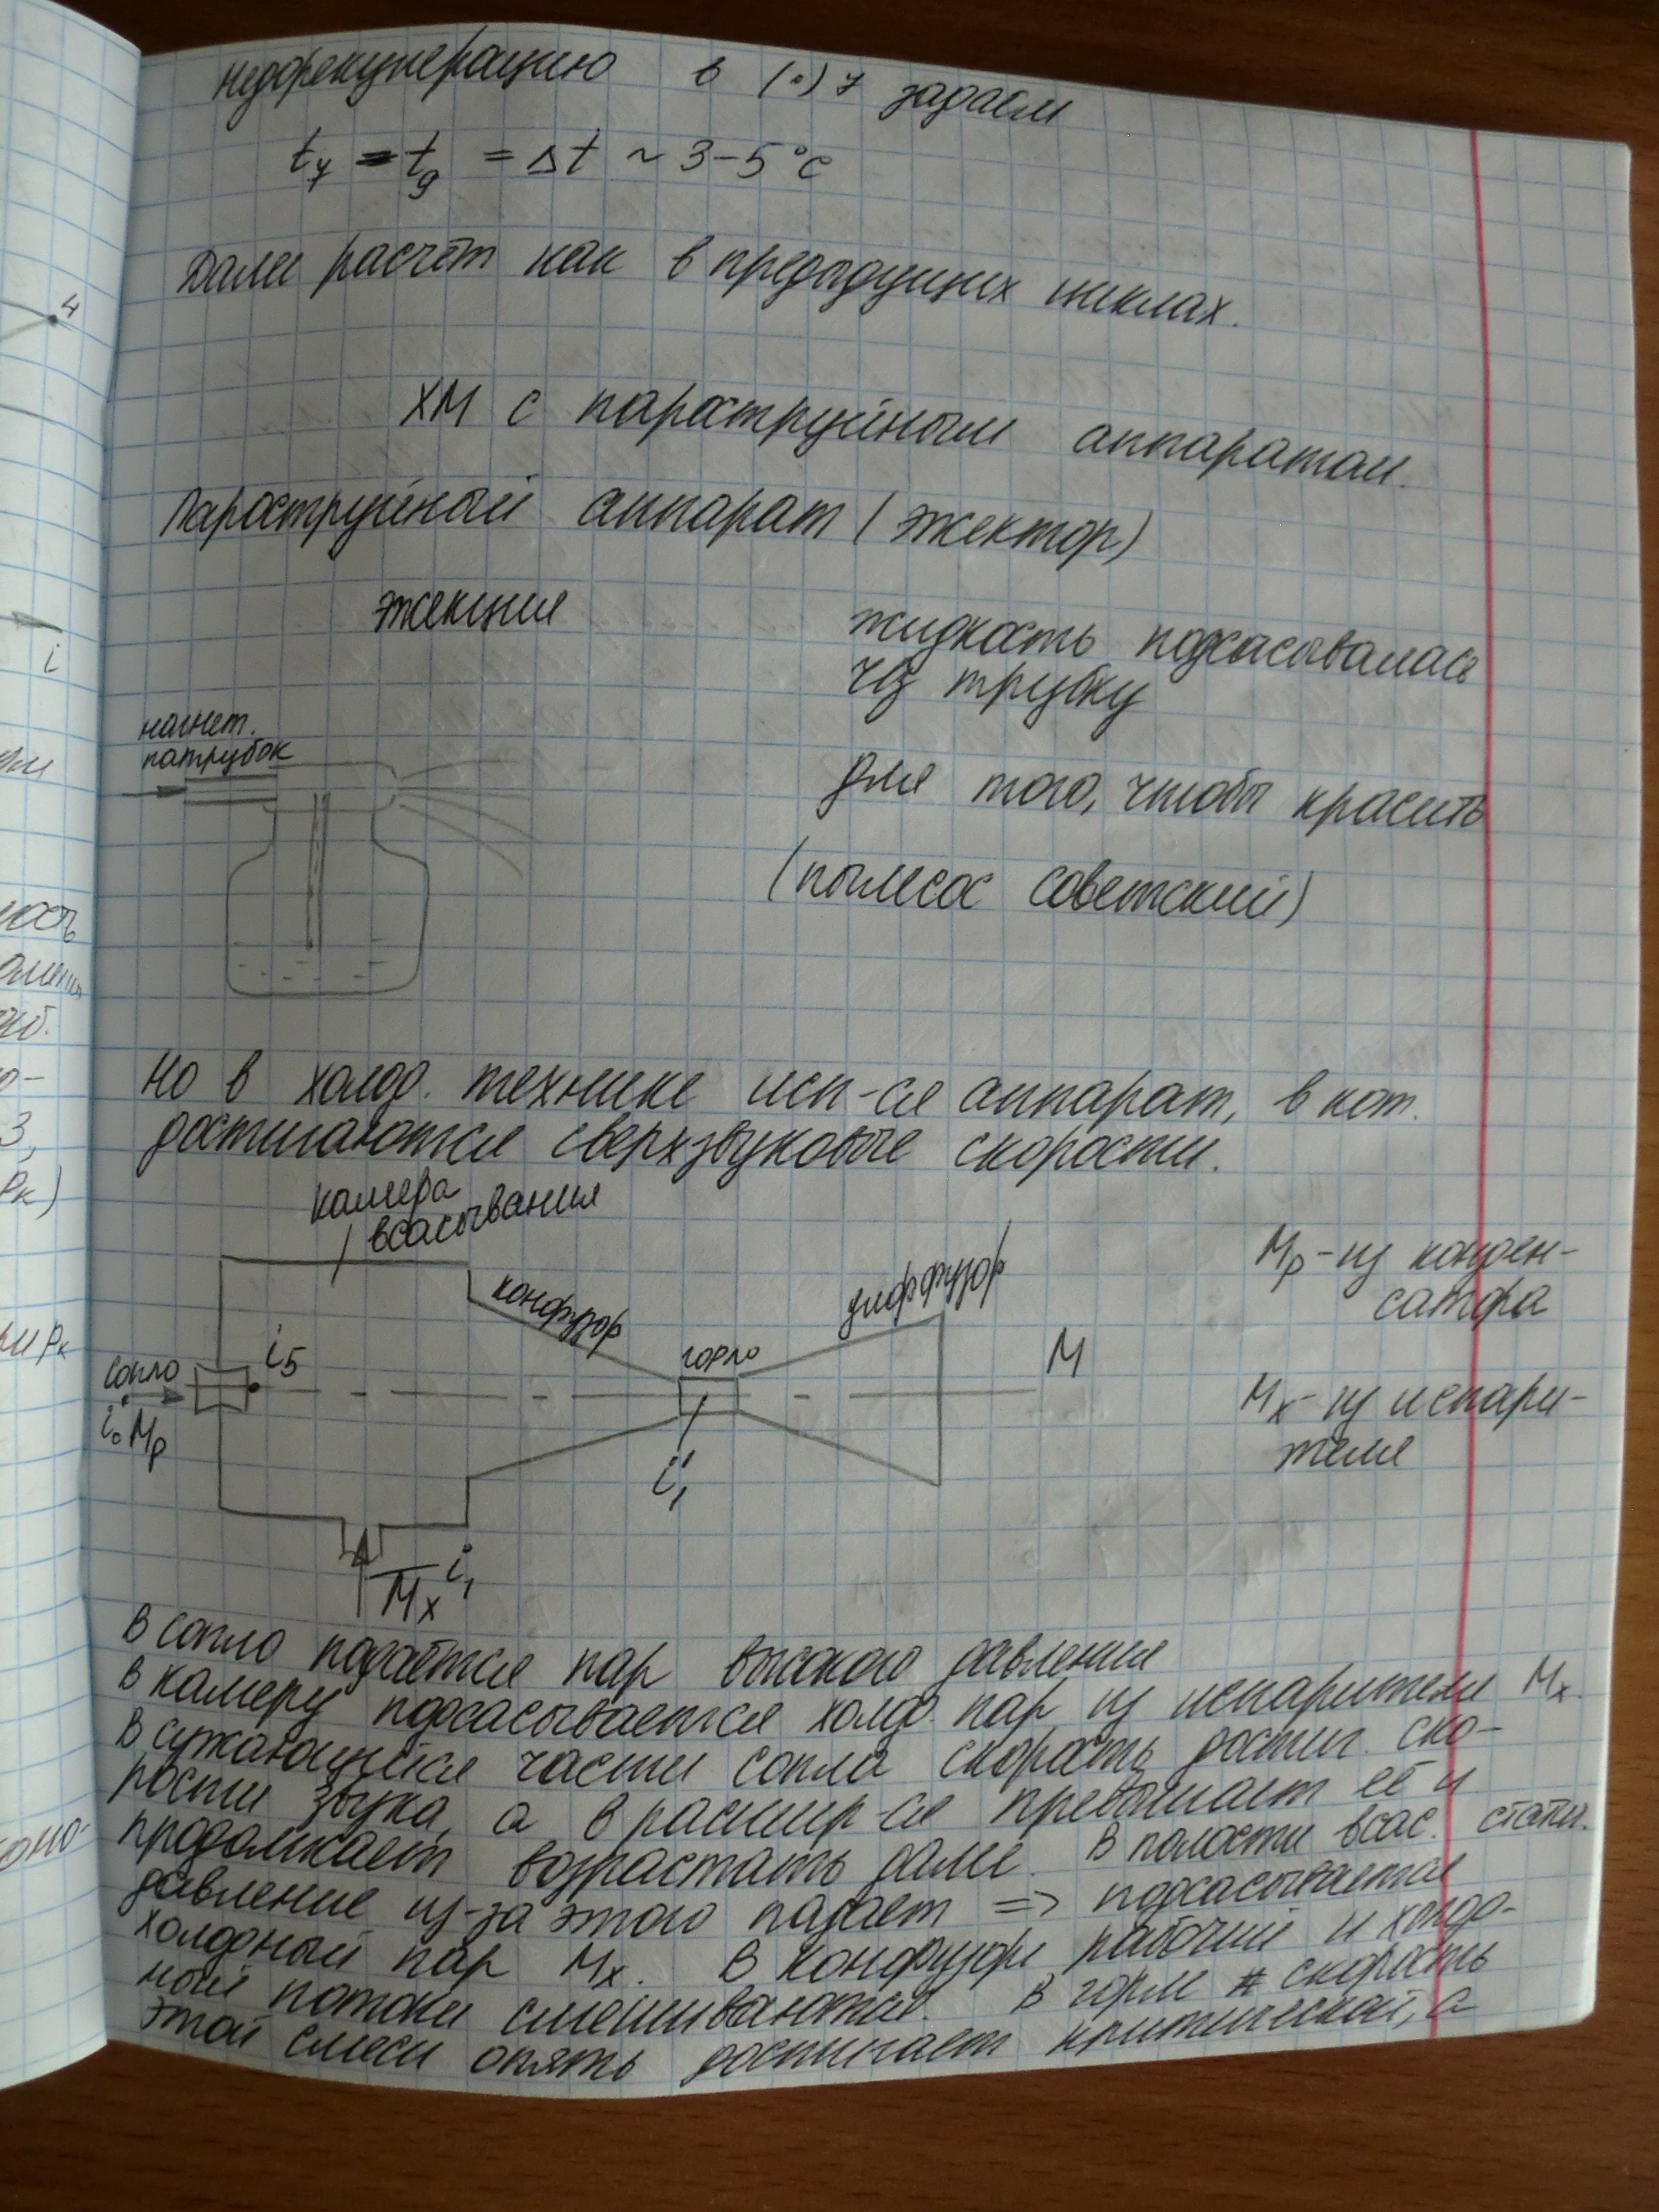 недорекуперацию в (•) 7 задаём
t₇ – t₉ = Δt ~ 3–5°C
Далее расчёт как в предыдущих циклах.
ХМ с пароструйным аппаратом.
Пароструйный аппарат (эжектор)
эжекция
жидкость подсасывалась
ч/з трубку
нагнет.
патрубок
для того, чтобы красить
(пылесос советский)
Но в холод. технике исп-ся аппарат, в кот.
достигаются сверхзвуковые скорости.
камера
всасывания
конфузор
горло
диффузор
M
Mр – из конден-
сатора
Mх – из испари-
теля
сопло
i₀ Mр
i₅
i₁'
Mх i₁
В сопло подаётся пар высокого давления
В камеру подсасывается холод. пар из испарителя Mх.
В сужающейся части сопла скорость достиг. ско-
рости звука, а в расшир-ся превышает её и
продолжает возрастать далее. В полости всас. стати.
давление из-за этого падает => подсасывается
холодный пар Mх. В конфузоре рабочий и холод-
ный потоки смешиваются. В горле скорость
этой смеси опять достигает критической, а
4
i
Pк)
Pк